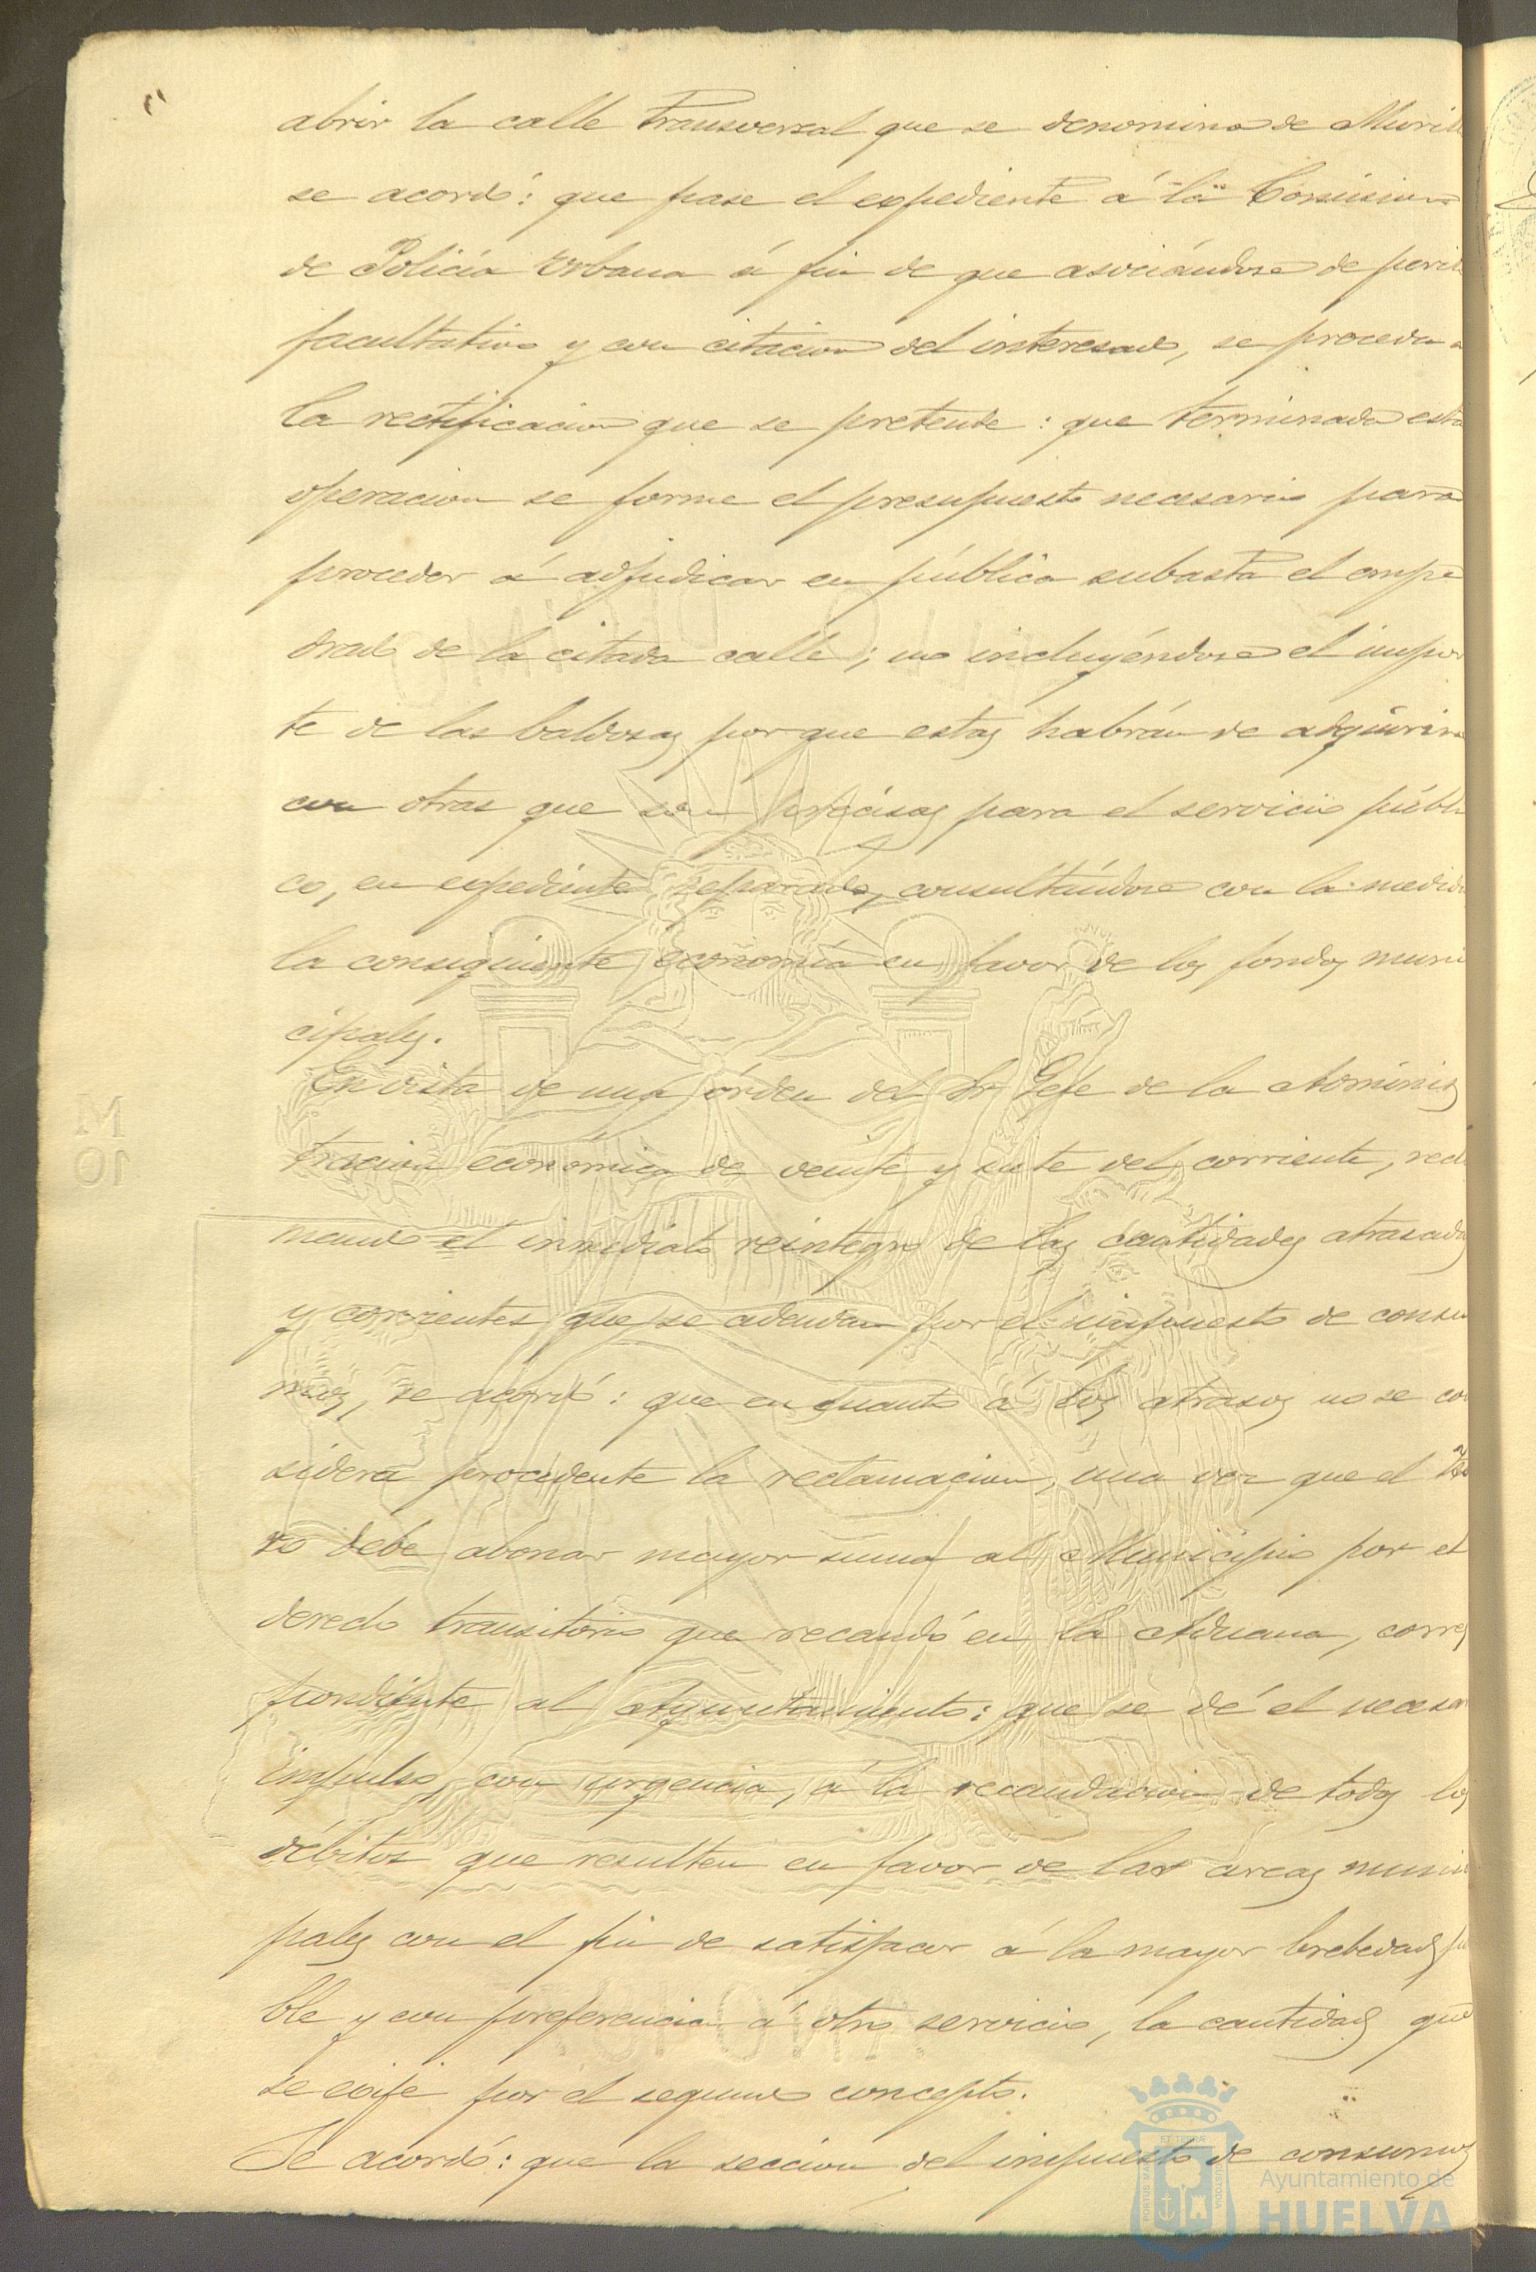 abrir la calle transversal que se denomina de Muril
se acordó: que pase el espediente á la Comision
de Policía Urbana á fin de que asociándose de perit
facultativo y con citacion del interesado, se proceda a
la rectificacion que se pretende: que terminada esta
operacion se forme el presupuesto necesario para
proceder á adjudicar en pública subasta el empe
drado de la citada calle; no incluyéndose el impor
te de las baldosas porque estas habrán de adquirir
con otras que son precisas para el servicio públi
co, en espediente separado, consultándose con la medida
la consiguiente economía en favor de los fondos muni
cipales.
En vista de una órden del Sr Gefe de la Adminis
tracion económica de veinte y siete del corriente, recla
mando el inmediato reintegro de las cantidades atrasadas
y corrientes que se adeudan por el impuesto de consu
mos, se acordó: que en cuanto á los atrasos no se con
sidera procedente la reclamacion, una vez que el Teso
ro debe abonar mayor suma al Municipio por el
derecho transitorio que recaudó en la Aduana, corres
pondiente al Ayuntamiento: que se dé el necesar
impulso, con urgencia, á la recaudacion de todos los
débitos que resulten en favor de las arcas munici
pales con el fin de satisfacer á la mayor brebedad posi
ble y con preferencia á otro servicio, la cantidad que
se exije por el segundo concepto.
Se acordó: que la seccion del impuesto de consumos
M
10
Ayuntamiento de
HUELVA